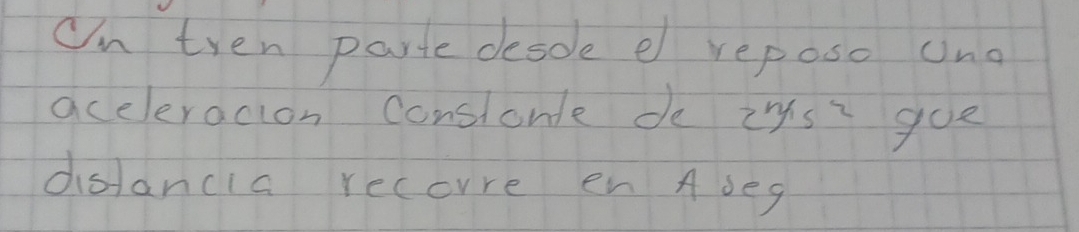 Un tren parte desde el reposo una
aceleracion constante de 2m/s² que
distancia recorre en A seg